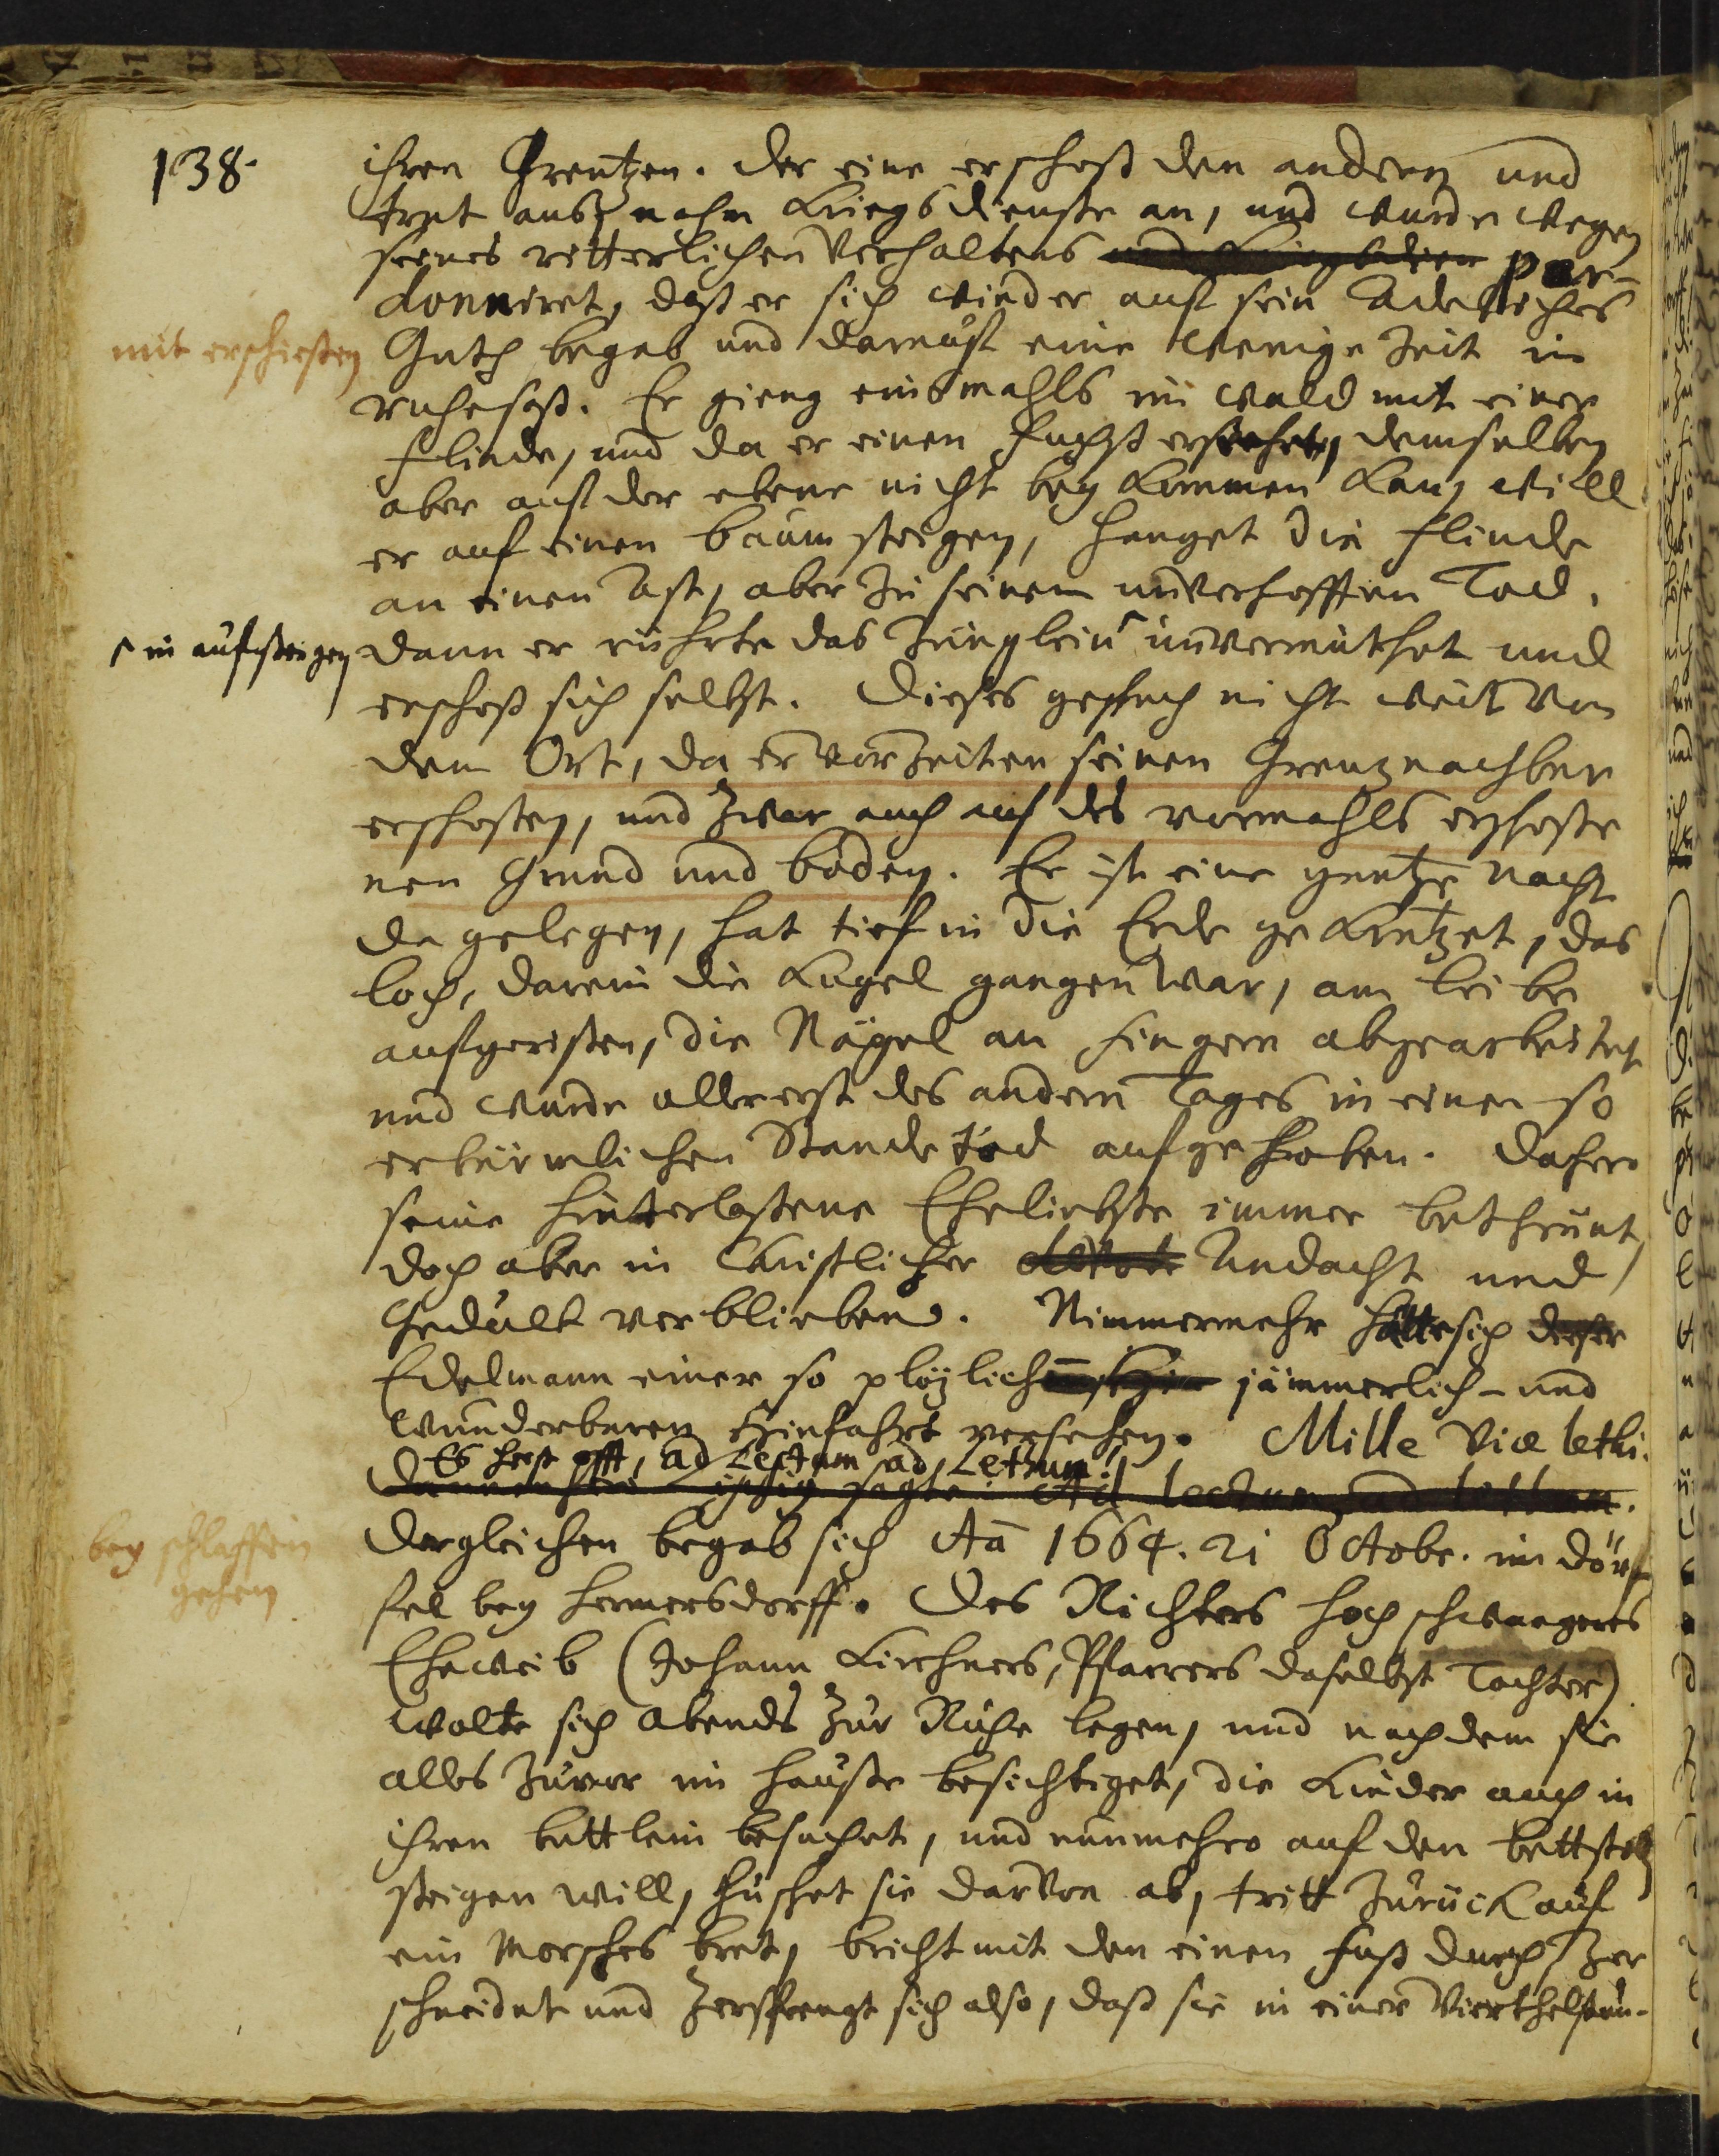 138.
ihren Grentzen. der eine erschoß den andern und
trat aus, nahm Kriegsdienste an, und wurde wegen
seines ritterlichen Verhaltens par-
donniret, daß er sich wieder auf sein Adeliches
mit erschießen
Guth begab und darauf eine wenige Zeit in
ruhe saß. Er gieng einsmahls in Wald mit einer
flinde, und da er einen Fuchß ersiehet, demselben
aber auf der ebene nicht bey kommen kan, will
er auf einen baum steigen, hanget die flinde
an einen Ast, aber zu seinem unverhofften Tod.
in aufsteigen
dann er rührte das Zünglein unvermuthet und
erschoß sich selbst. Dieses geschach nicht weit von
dem Ort, da er vor Zeiten seinen Grenznachbar
erschoßen, und zwar auch auf des vormahls erschoße
nen Grund und boden. Er ist eine gantze Nacht
da gelegen, hat tief in die Erde gekratzet, das
loch, darein die Kugel gangen war, am leibe
aufgerißen, die Nägel an fingern abgearbeitet
und wurde allererst des andern Tages in einen so
erbärmlichen Stande tod aufgehoben. Dahero
seine hinterlaßene Eheliebste immer bethrünt,
doch aber in Christlicher Andacht und
Gedult verblieben. Nimmermehr hätte sich dieser
Edelmann einer so plözlich jämmerlich- und
wunderbaren Hinfahrt versehen. Mille viæ lethi.
Es heist offt, ad Lectum ad Letum!
sagte: Ad lectum, ad lettum.
bey schlaffen
gehen
Dergleichen begab sich Aō 1664. 21 Octobr. im dörf-
fel bey Hermersdorff. Des Richters hoch schwangeres
Eheweib (Johann Kirchners, Pfarrers daselbst Tochter)
wolte sich Abends zur Ruhe legen, und nach dem sie
alles zuvor im Hauße besichtiget, die Kinder auch in
ihren bettlein besuchet, und nunmehro auf den bettstoll
steigen will, huschet sie darvon ab, tritt zurück auf
ein morsches bret, bricht mit den einen fuß durch, zer
schneidet und zersprengt sich also, daß sie in einer Vierthelstun-